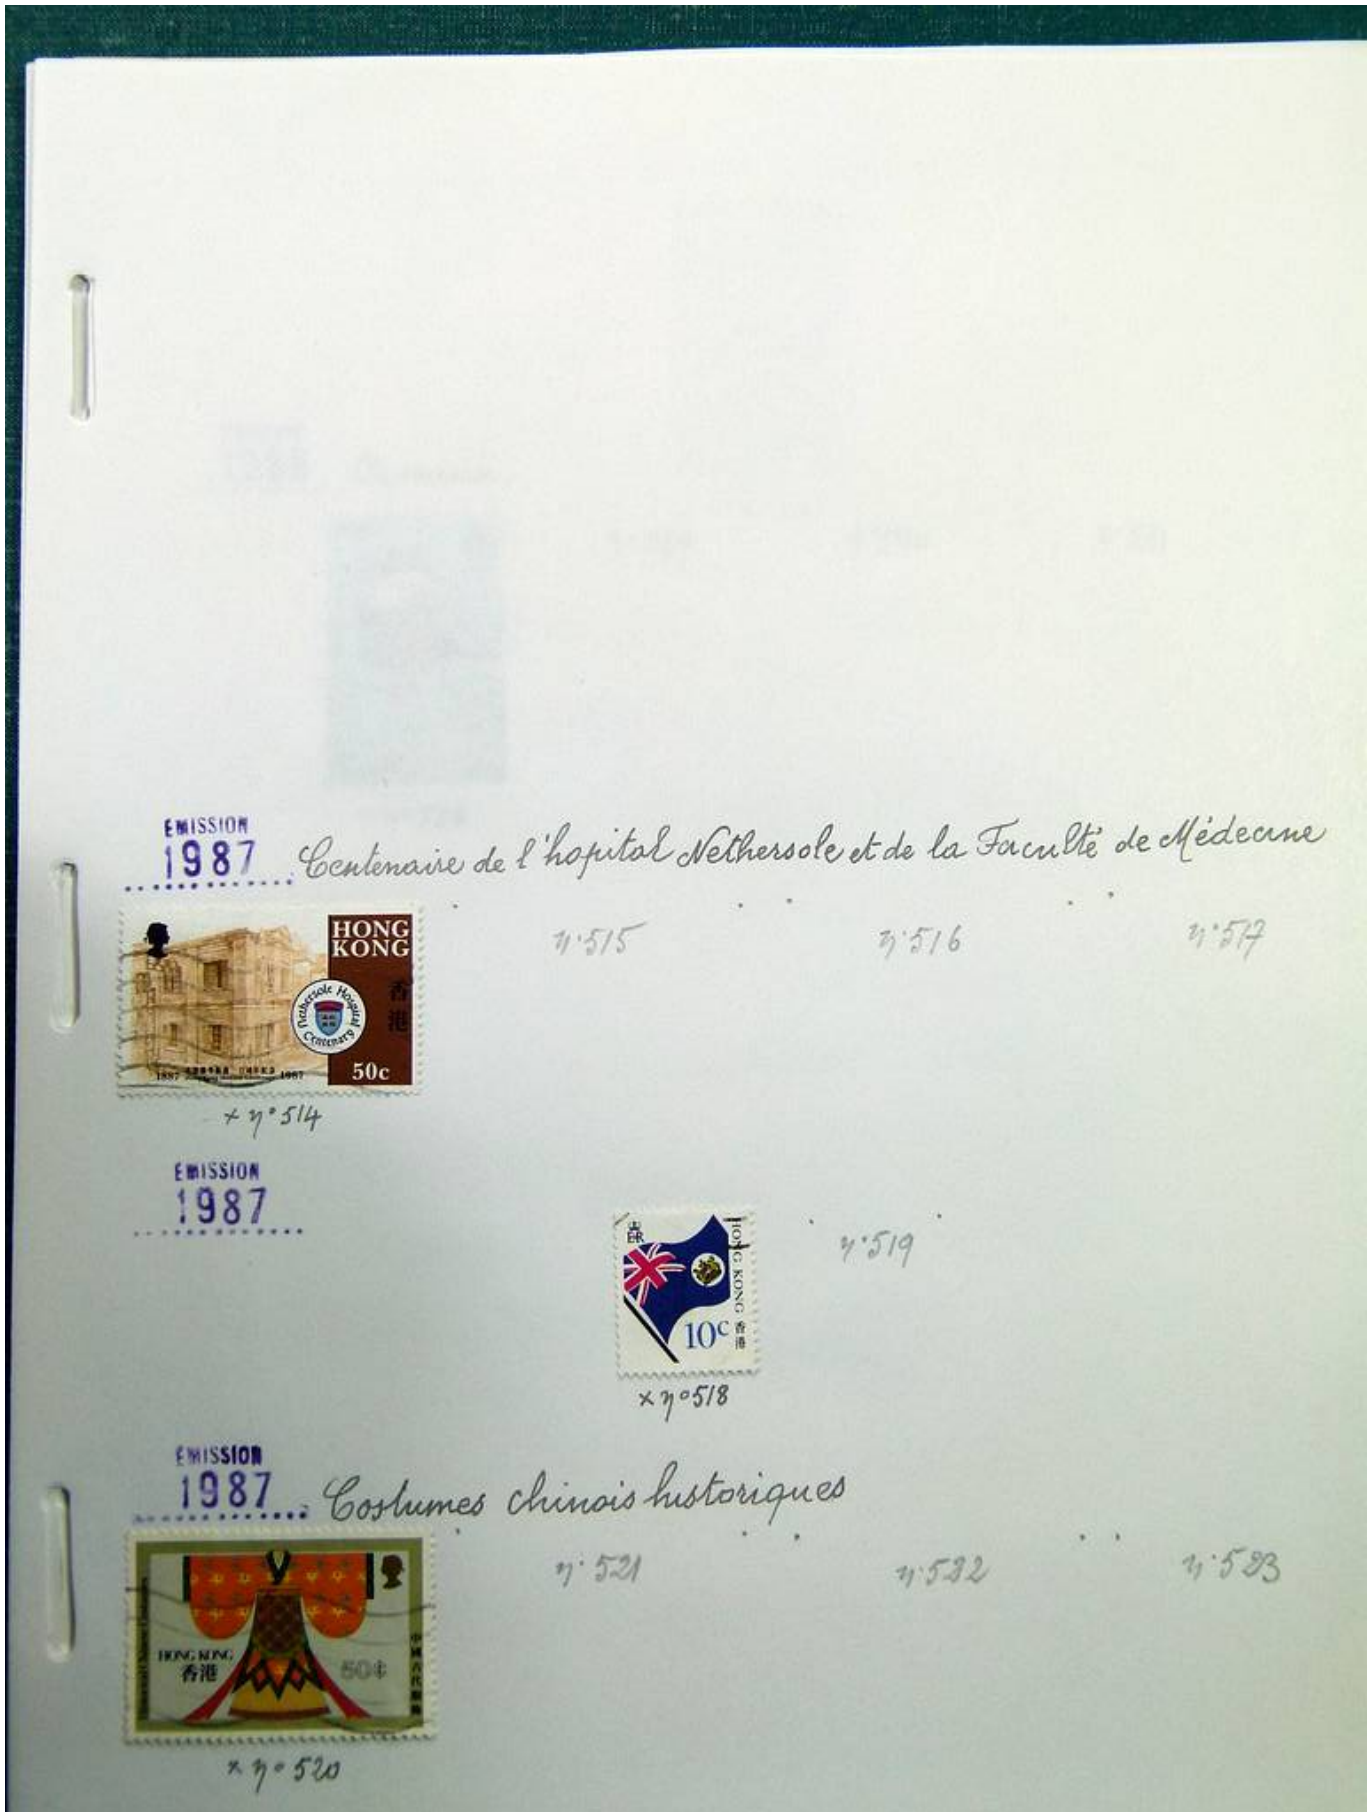 EMISSION
1987
Centenaire de l'hopital Nethersole et de la Faculté de Médecine
HONG
KONG
香
港
Nethersole Hospital
Centenary
1887
1987
50c
n°515
n°516
n°517
x n°514
EMISSION
1987
ER
HONG KONG 香港
10c
n°519
x n°518
EMISSION
1987
Costumes chinois historiques
Historical Chinese Costumes
HONG KONG
香港
50¢
中國古代服飾
n°521
n°522
n°523
x n°520